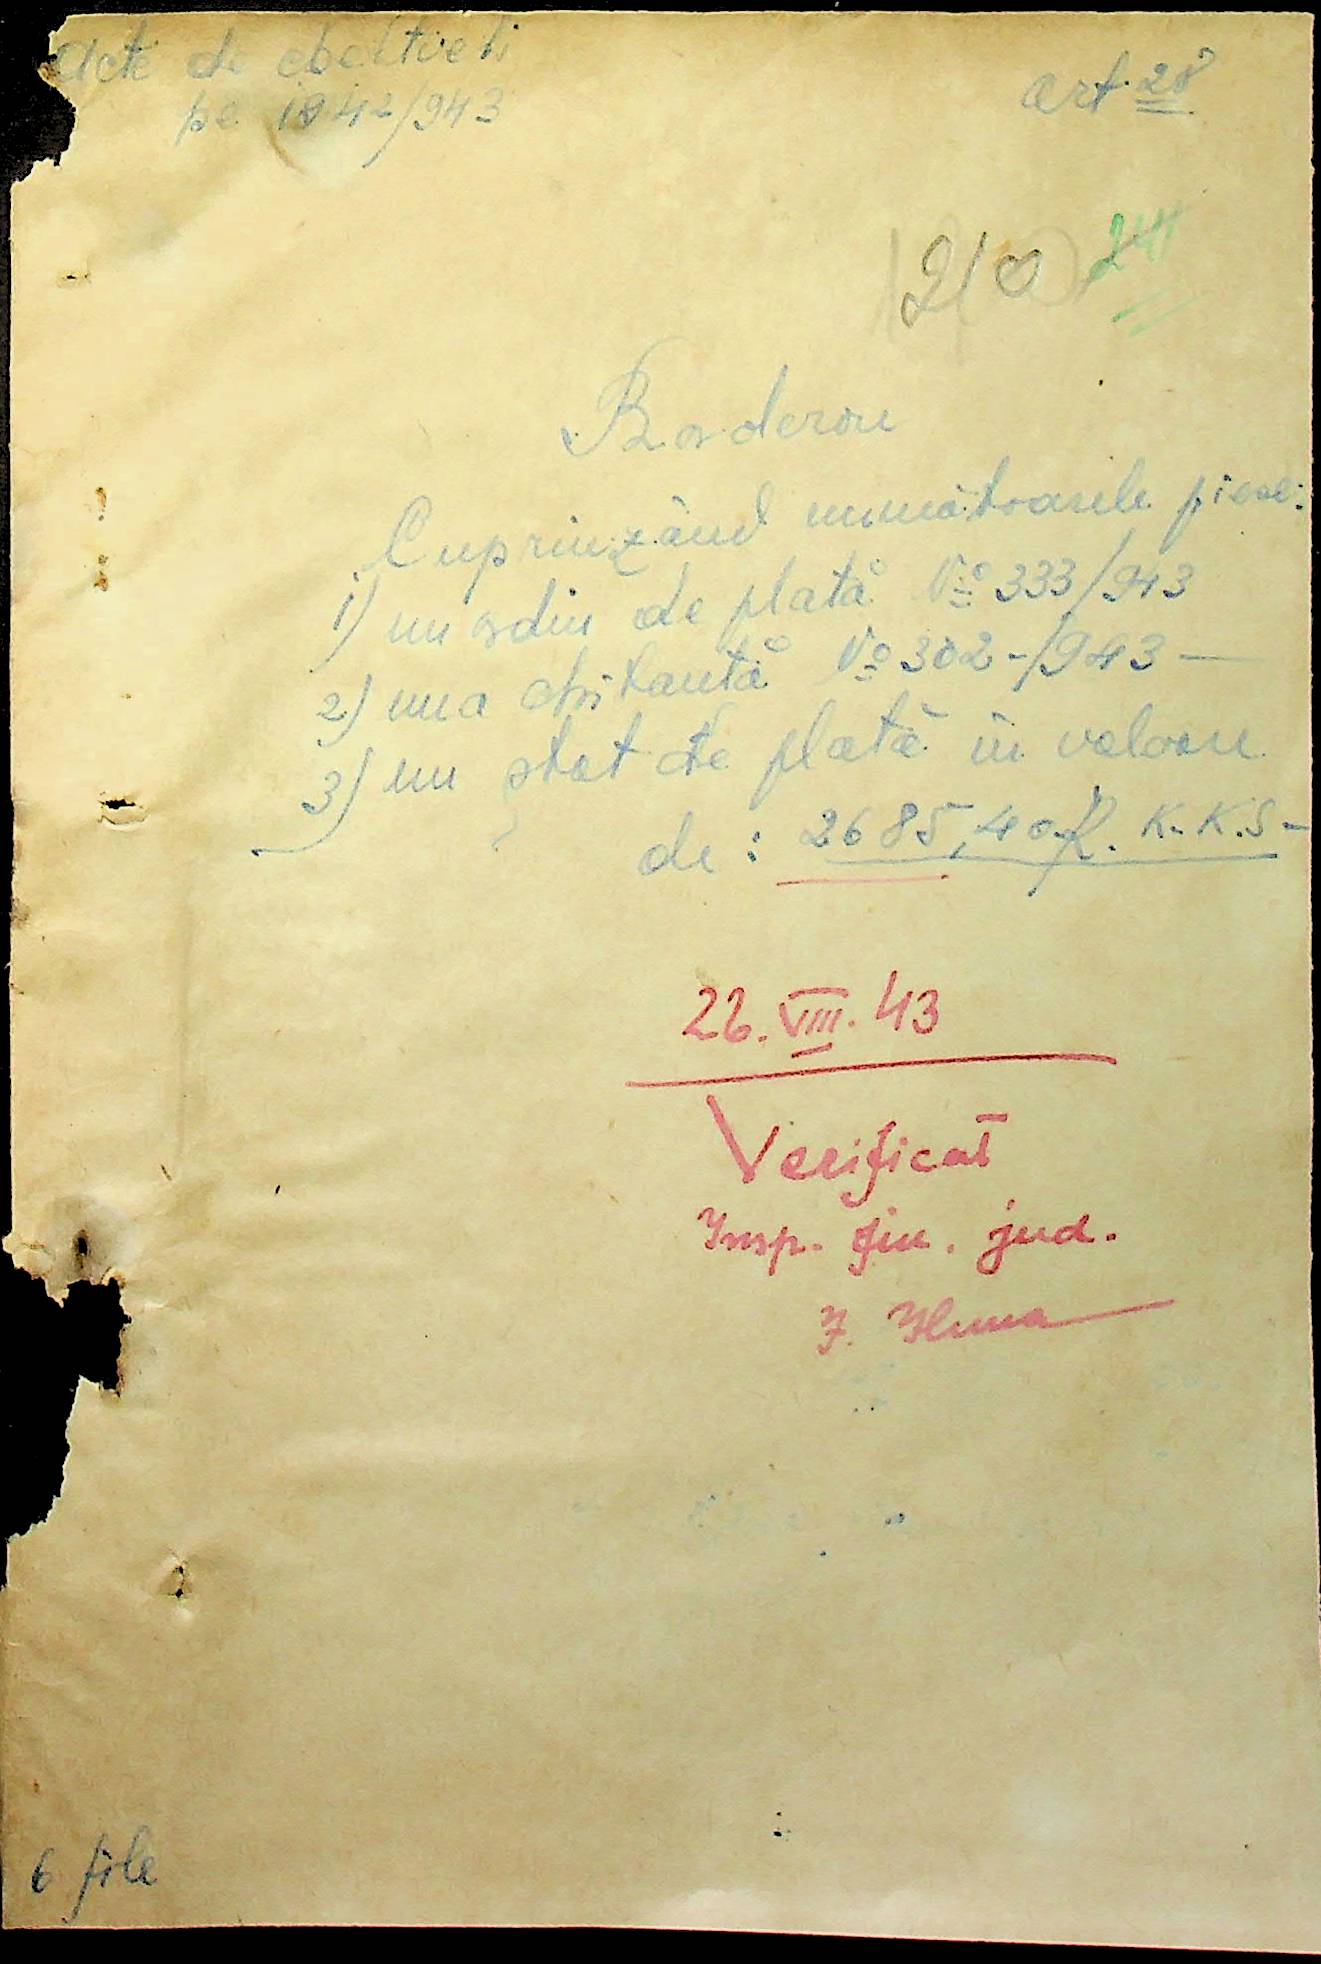 Acte de cheltueli
pe 1942/943
art 28
210
241
Borderou
Cuprinzând următoarele piese:
1) un ordin de plată № 333/943
2) una chitanță № 302-/943 —
3) un stat de plată în valoare
de: 2685,40 R. K. K. S-
26. VIII. 43
Verificat
Insp. fin. jud.
6 file